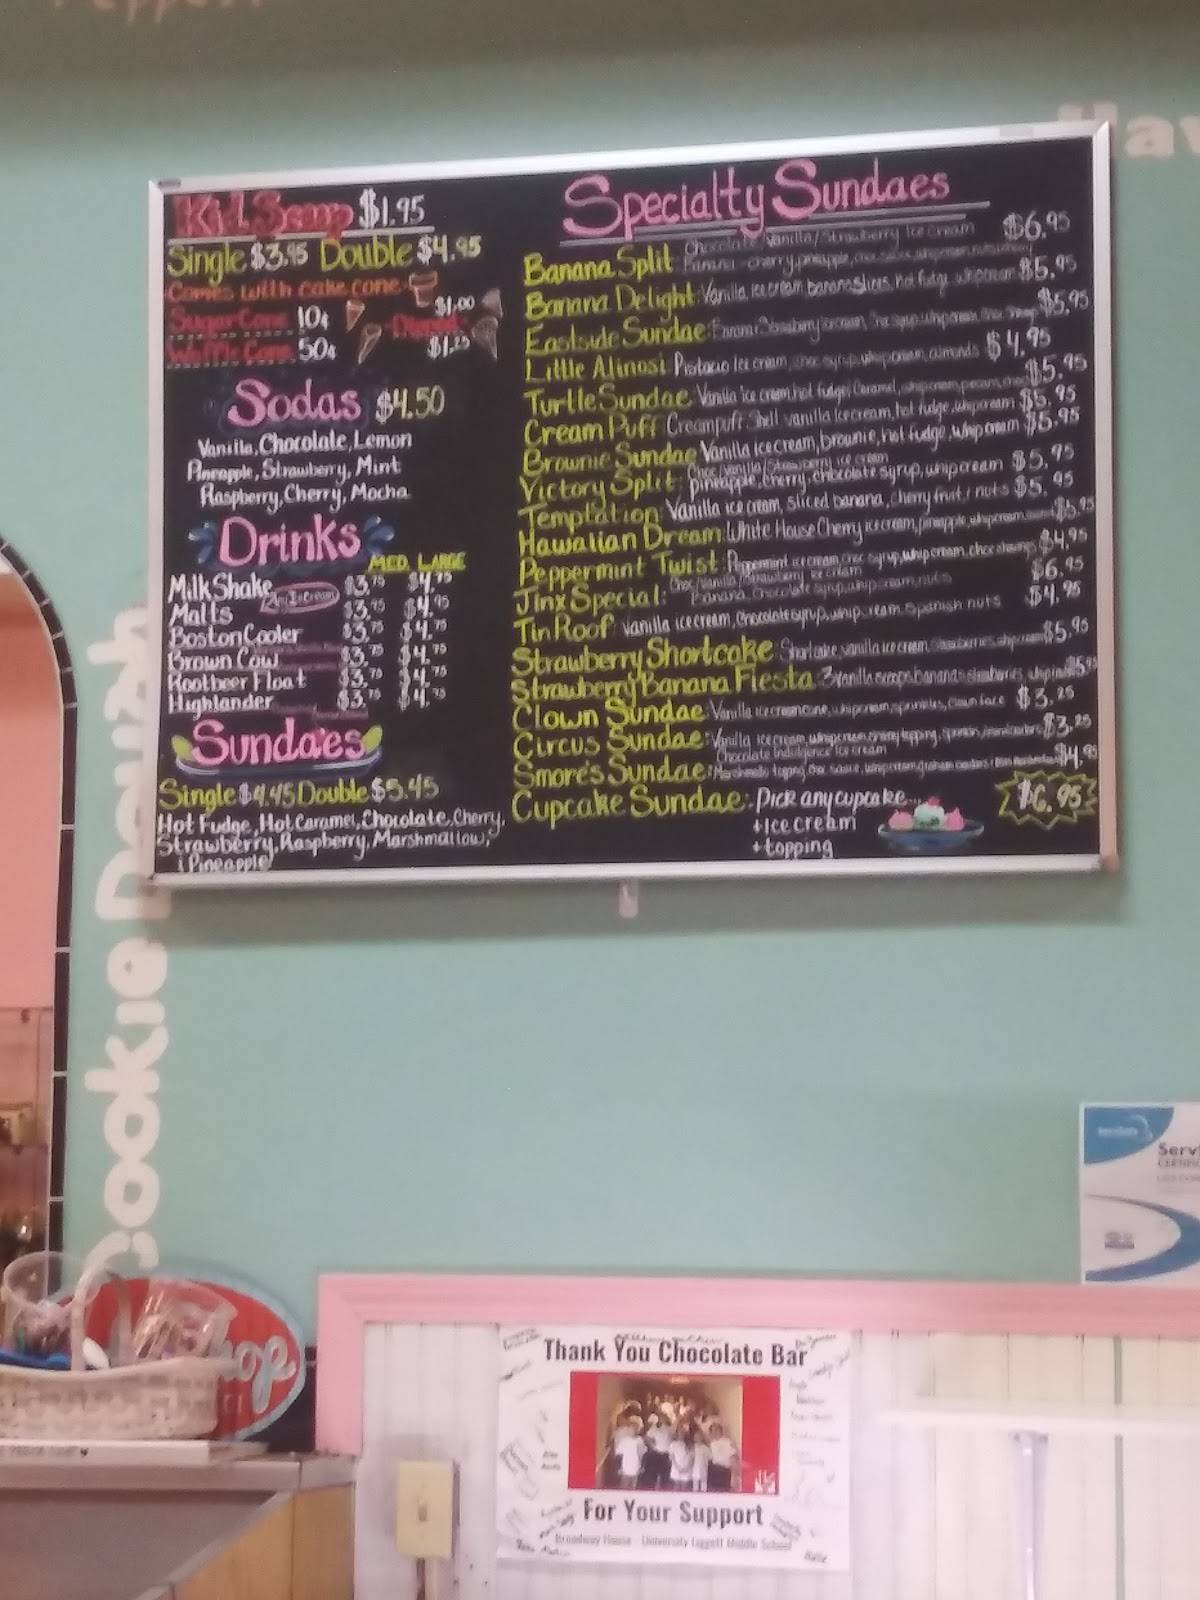 Kid Scoop $1.95
Single $3.95 Double $4.95
Comes with cake cone
$1.00
Sugar Cone 10¢
Dipped
Waffle Cone 50¢
$1.25
Sodas $4.50
Vanilla, Chocolate, Lemon
Pineapple, Strawberry, Mint
Raspberry, Cherry, Mocha
Drinks
MED. LARGE
Milk Shake $3.75 $4.75
Malts $3.95 $4.95
Boston Cooler $3.75 $4.75
Brown Cow $3.75 $4.75
Rootbeer Float $3.75 $4.75
Highlander $3.75 $4.75
Sundaes
Single $4.45 Double $5.45
Hot Fudge, Hot Caramel, Chocolate, Cherry,
Strawberry, Raspberry, Marshmallow,
i Pineapple
Specialty Sundaes
Banana Split: Chocolate/Vanilla/Strawberry Ice cream $6.95
Banana Delight: Vanilla ice cream banana slices, hot fudge, whip cream $5.95
Eastside Sundae: $5.95
Little Alinosi: Pistacio Ice cream, choc syrup, whip cream, almonds $4.95
Turtle Sundae: Vanilla ice cream, hot fudge, Caramel, whip cream, pecans $5.95
Cream Puff: Creampuff Shell vanilla Ice cream, hot fudge, whip cream $5.95
Brownie Sundae Vanilla ice cream, brownie, hot fudge, whip cream $5.95
Victory Split: Choc/Vanilla/Strawberry ice cream
pineapple, cherry, chocolate syrup, whip cream $5.95
Temptation: Vanilla ice cream, sliced banana, cherry fruit i nuts $5.95
Hawaiian Dream: White House Cherry ice cream, pineapple, whip cream $5.95
Peppermint Twist: Peppermint ice cream, choc syrup, whip cream, choc shavings $4.95
Jinx Special: Choc/Vanilla/Strawberry Ice cream $6.95
Banana, Chocolate syrup, whip cream, nuts
Tin Roof: Vanilla ice cream, Chocolate syrup, whip cream, spanish nuts $4.95
Strawberry Shortcake: Shortcake, vanilla ice cream, Strawberries, whip cream $5.95
Strawberry Banana Fiesta: 3 vanilla scoops bananas strawberries, whip $5.95
Clown Sundae: Vanilla ice cream cone, whip cream, sprinkles, clown face $3.25
Circus Sundae: Vanilla ice cream, whip cream $3.25
Smores Sundae: Chocolate Indulgence Ice cream
Marshmallo topping, choc sauce, whip cream, graham $4.95
Cupcake Sundae: Pick any cupcake... $6.95
+ Ice cream
+ topping
Cookie Dough
Hav
Servi
Shop
Thank You Chocolate Bar
For Your Support
Broadway House University Liggett Middle School